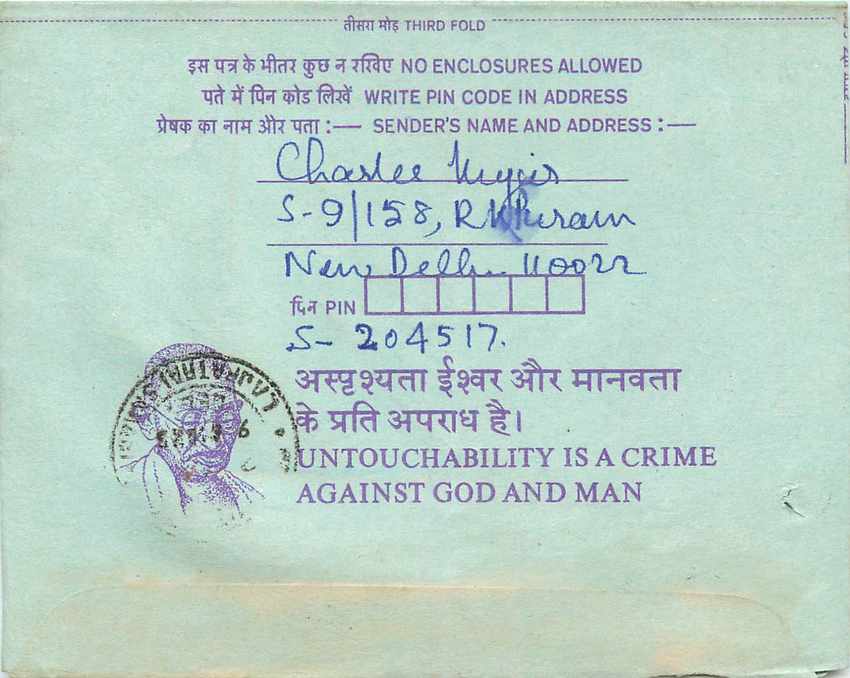 तीसरा मोड़ THIRD FOLD
इस पत्र के भीतर कुछ न रखिए NO ENCLOSURES ALLOWED
पते में पिन कोड लिखें WRITE PIN CODE IN ADDRESS
प्रेषक का नाम और पता :— SENDER'S NAME AND ADDRESS :—
Charlee
S-9/158, R K Puram
New Delhi 110022
पिन PIN
S- 204517.
अस्पृश्यता ईश्वर और मानवता
के प्रति अपराध है।
UNTOUCHABILITY IS A CRIME
AGAINST GOD AND MAN